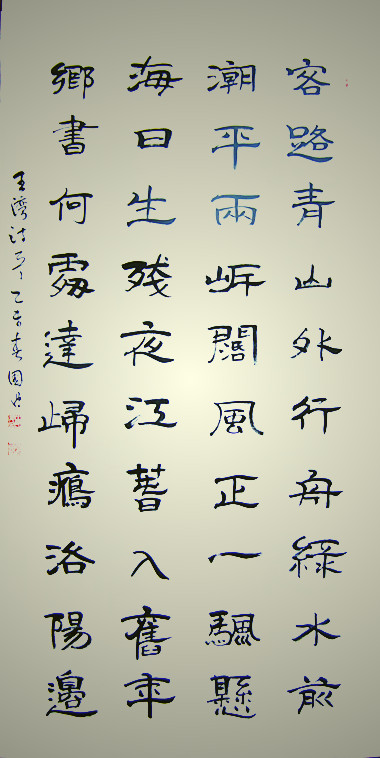 客路青山外行舟綠水前
潮平兩岸闊風正一颿懸
海日生残夜江萅入舊年
鄉書何處達歸鴈洛陽邊
王灣詩 乙 春國